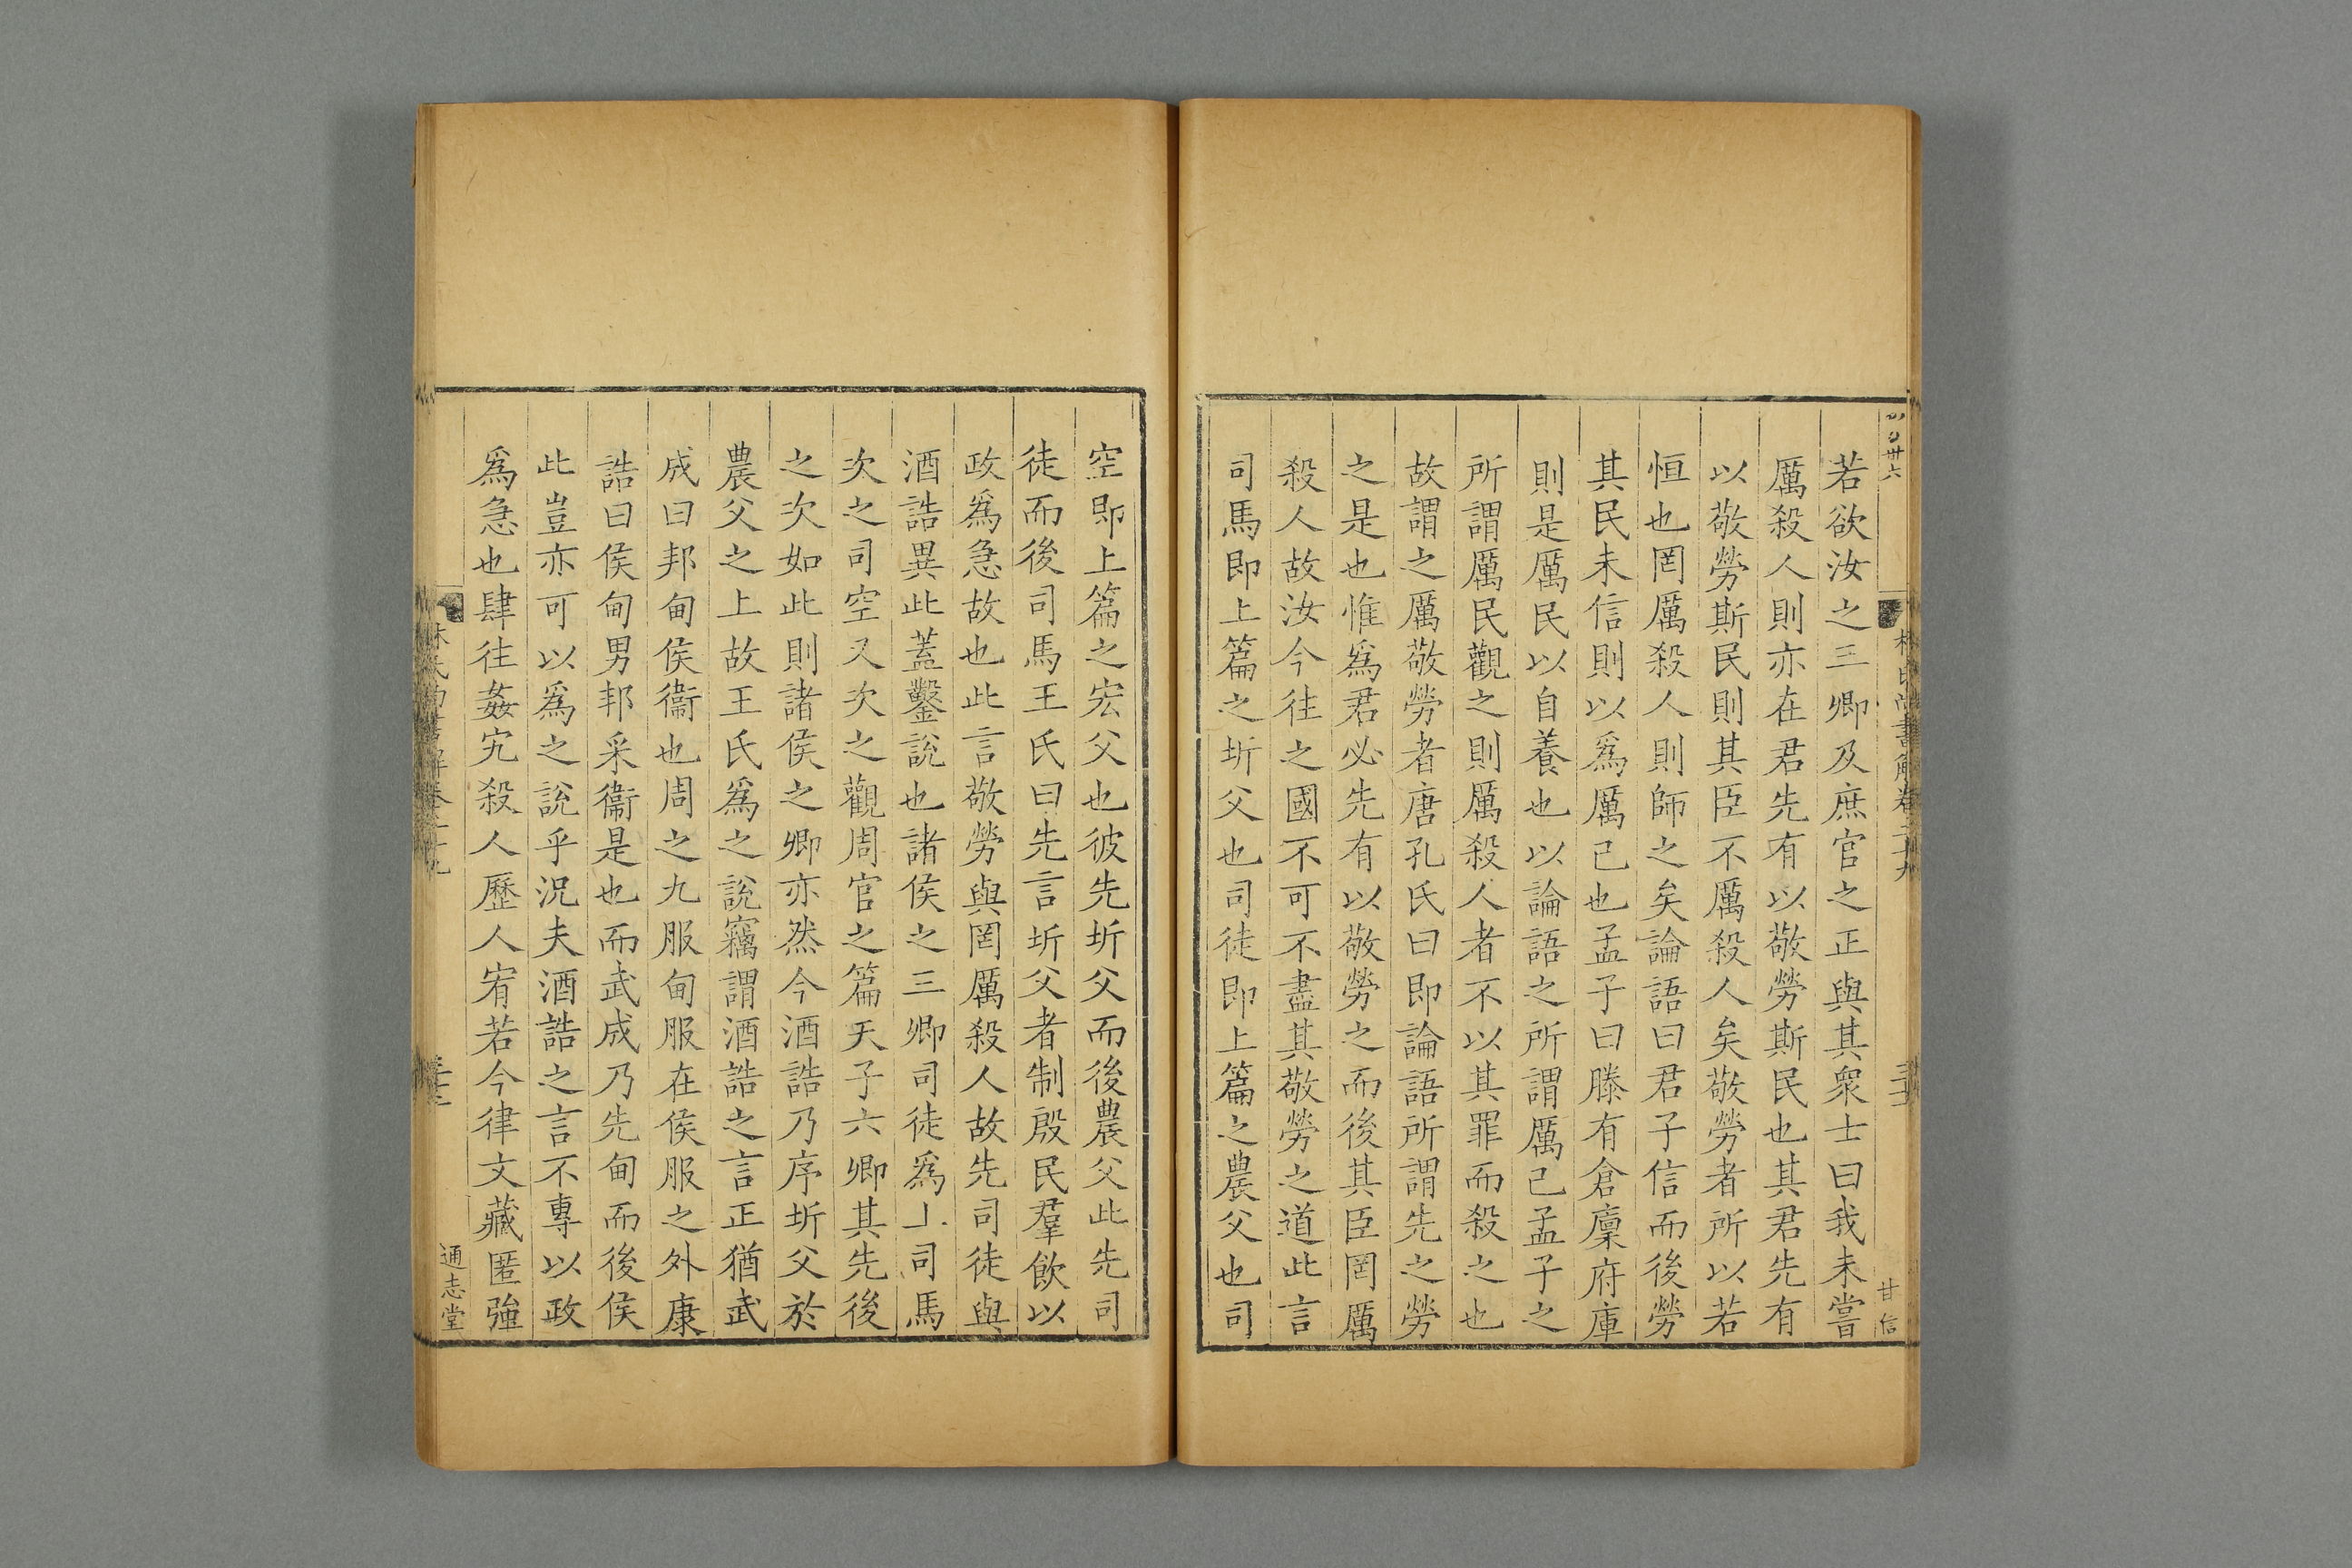 若欲汝之三卿及庶官之正與其衆士曰我未嘗
厲殺人則亦在君先有以敬勞斯民也其君先有
以敬勞斯民則其臣不厲殺人矣敬勞者所以若
恒也罔厲殺人則師之矣論語曰君子信而後勞
其民未信則以爲厲己也孟子曰滕有倉廩府庫
則是厲民以自養也以論語之所謂厲己孟子之
所謂厲民觀之則厲殺人者不以其罪而殺之也
故謂之厲敬勞者唐孔氏曰即論語所謂先之勞
之是也惟爲君必先有以敬勞之而後其臣罔厲
殺人故汝今往之國不可不盡其敬勞之道此言
司馬即上篇之圻父也司徒即上篇之農父也司
空即上篇之宏父也彼先圻父而後農父此先司
徒而後司馬王氏曰先言圻父者制殷民羣飲以
政爲急故也此言敬勞與罔厲殺人故先司徒與
酒誥異此蓋鑿說也諸侯之三卿司徒爲上司馬
次之司空又次之觀周官之篇天子六卿其先後
之次如此則諸侯之卿亦然今酒誥乃序圻父於
農父之上故王氏爲之說竊謂酒誥之言正猶武
成曰邦甸侯衞也周之九服甸服在侯服之外康
誥曰侯甸男邦采衞是也而武成乃先甸而後侯
此豈亦可以爲之說乎況夫酒誥之言不專以政
爲急也肆往姦宄殺人歷人宥若今律文藏匿強
林氏尚書解卷二十九
甘信
通志堂